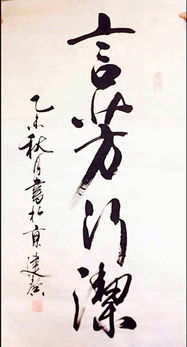 言芳行潔
乙未秋月書於京建